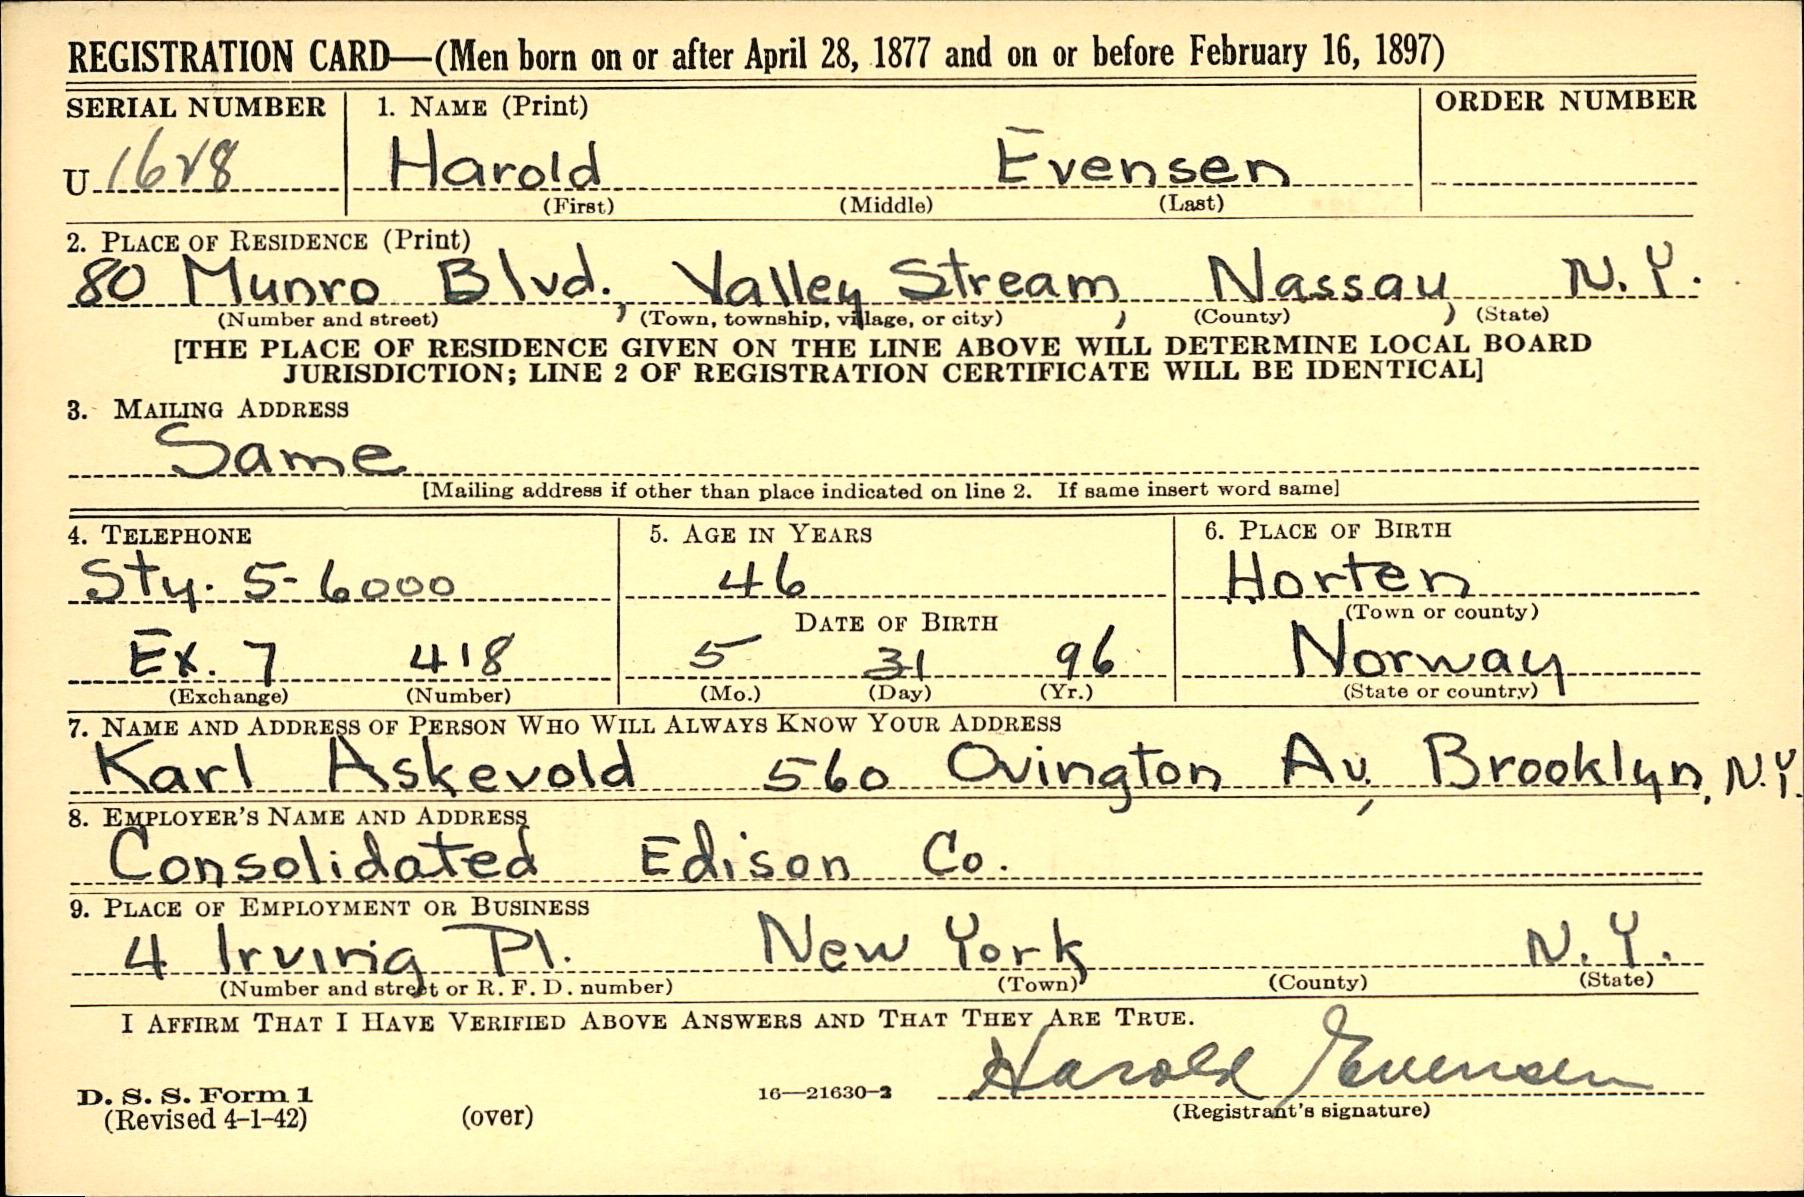 REGISTRATION CARD—(Men born on or after April 28, 1877 and on or before February 16, 1897)
SERIAL NUMBER 1. NAME (Print) ORDER NUMBER
U 1628 Harold Evensen
(First) (Middle) (Last)
2. PLACE OF RESIDENCE (Print)
80 Munro Blvd., Valley Stream, Nassau, N.Y.
(Number and street) (Town, township, village, or city) (County) (State)
[THE PLACE OF RESIDENCE GIVEN ON THE LINE ABOVE WILL DETERMINE LOCAL BOARD
JURISDICTION; LINE 2 OF REGISTRATION CERTIFICATE WILL BE IDENTICAL]
3. MAILING ADDRESS
Same
[Mailing address if other than place indicated on line 2. If same insert word same]
4. TELEPHONE 5. AGE IN YEARS 6. PLACE OF BIRTH
Sty. 5-6000 46 Horten
DATE OF BIRTH (Town or county)
Ex. 7 418 5 31 96 Norway
(Exchange) (Number) (Mo.) (Day) (Yr.) (State or country)
7. NAME AND ADDRESS OF PERSON WHO WILL ALWAYS KNOW YOUR ADDRESS
Karl Askevold 560 Ovington Av, Brooklyn, N.Y.
8. EMPLOYER'S NAME AND ADDRESS
Consolidated Edison Co.
9. PLACE OF EMPLOYMENT OR BUSINESS
4 Irving Pl. New York N.Y.
(Number and street or R. F. D. number) (Town) (County) (State)
I AFFIRM THAT I HAVE VERIFIED ABOVE ANSWERS AND THAT THEY ARE TRUE.
Harold Evensen
D. S. S. Form 1 16—21630-2
(Revised 4-1-42) (over) (Registrant's signature)